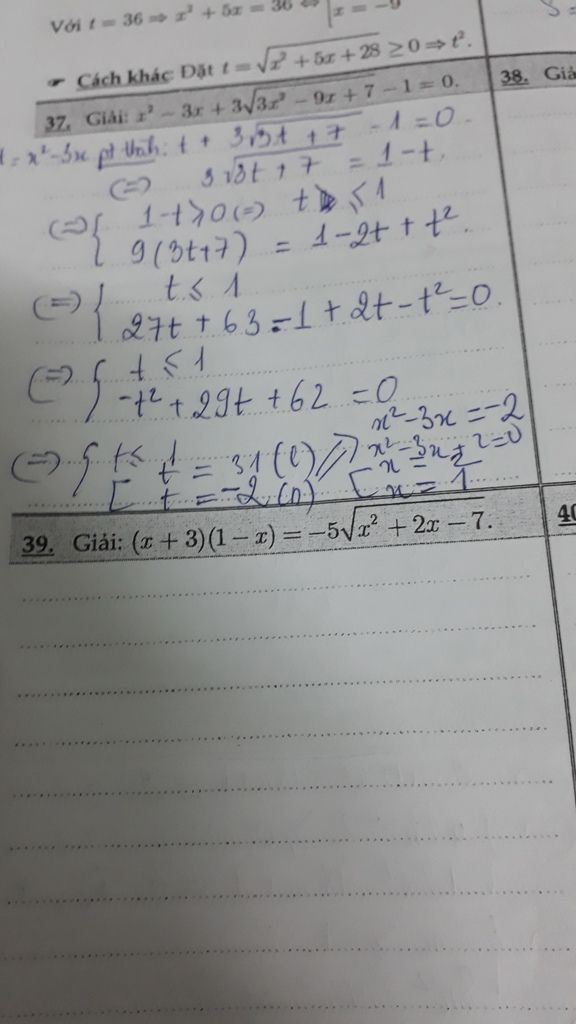 Với t = 36 ⇒ x² + 5x = 36 ⇔ [ x = −9
☛ Cách khác: Đặt t = √(x² + 5x + 28) ≥ 0 ⇒ t².
37. Giải: x² − 3x + 3√(3x² − 9x + 7) − 1 = 0.
38. Giả
t = x² − 3x pt thành: t + 3√(3t + 7) − 1 = 0
(=) 3√(3t + 7) = 1 − t.
(=) { 1 − t ≥ 0 (=) t ≤ 1
9(3t+7) = 1 − 2t + t².
(=) { t ≤ 1
27t + 63 − 1 + 2t − t² = 0.
(=) { t ≤ 1
−t² + 29t + 62 = 0
(=) { t ≤ 1
[ t = 31 (l)
t = −2 (n)
⇒ x² − 3x = −2
x² − 3x + 2 = 0
[ x = 2
x = 1
39. Giải: (x + 3)(1 − x) = −5√(x² + 2x − 7).
40